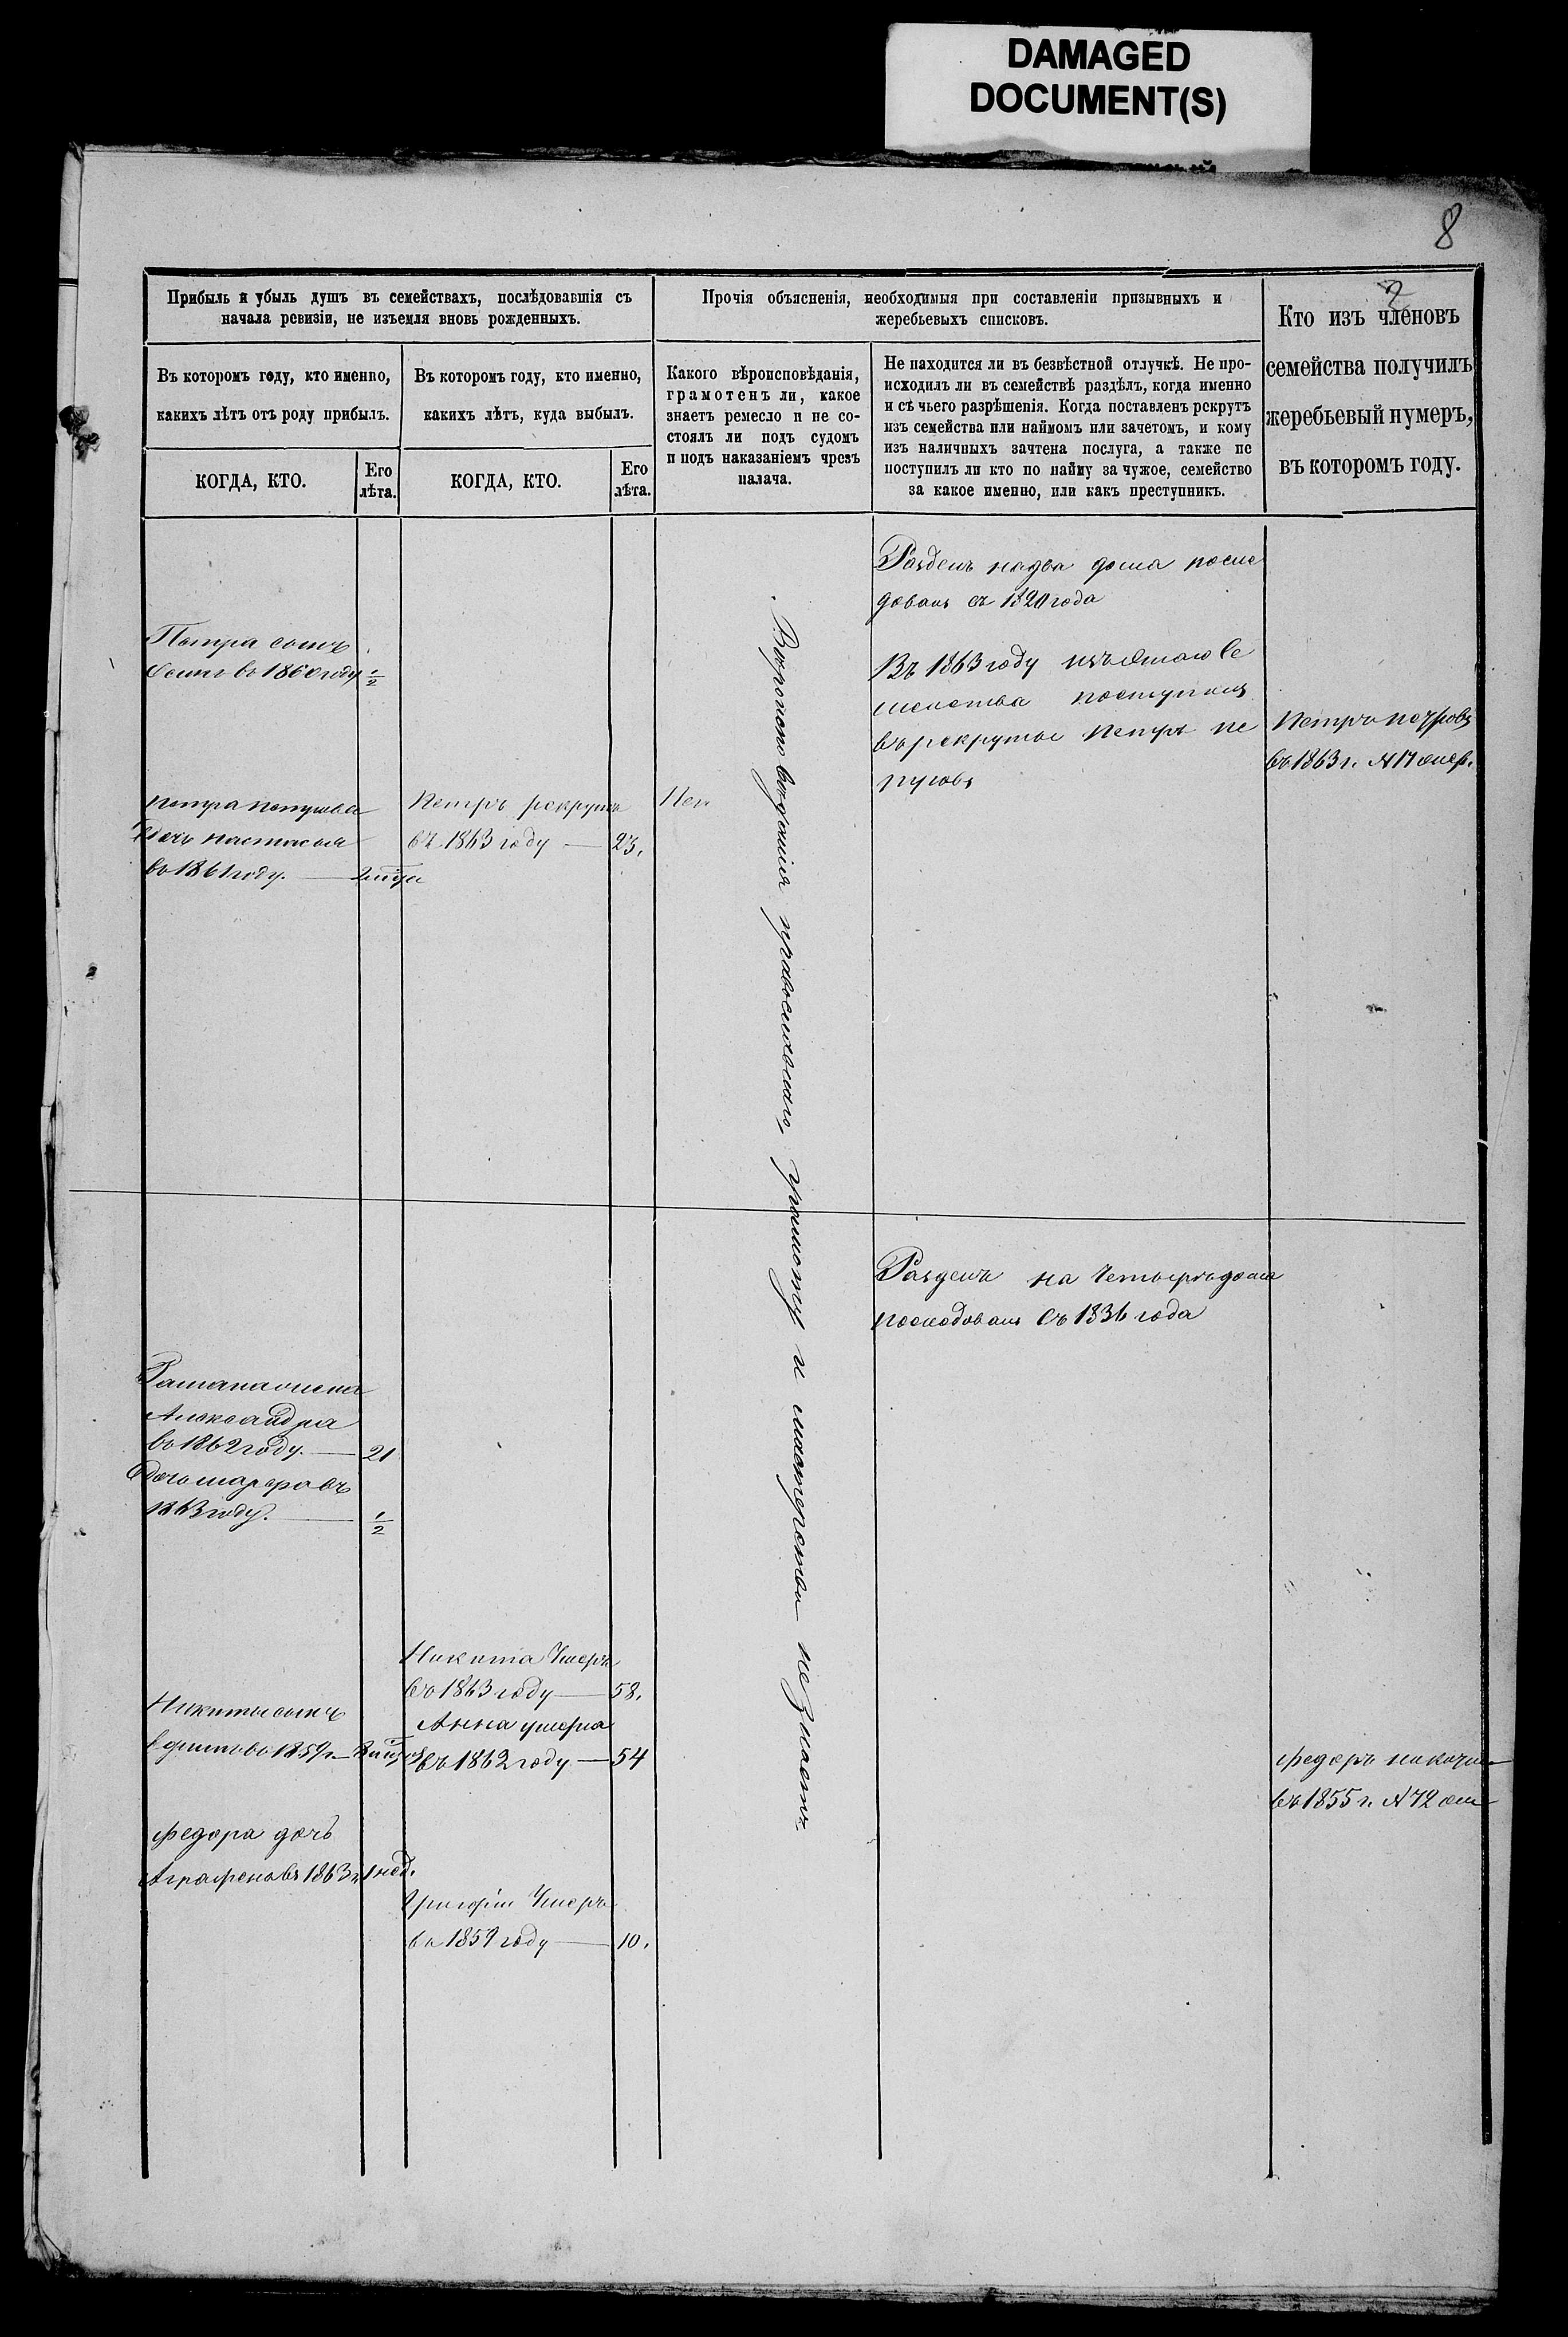 DAMAGED
DOCUMENT(S)
8
2
Прибыль и убыль душъ въ семействахъ, послѣдовавшія съ
начала ревизіи, не изъемля вновь рожденныхъ.
Прочія объясненія, необходимыя при составленіи призывныхъ и
жеребьевыхъ списковъ.
Кто изъ членовъ
семейства получилъ
жеребьевый нумеръ,
въ которомъ году.
Въ которомъ году, кто именно,
какихъ лѣтъ отъ роду прибылъ.
Въ которомъ году, кто именно,
какихъ лѣтъ, куда выбылъ.
Какого вѣроисповѣданія,
грамотенъ ли, какое
знаетъ ремесло и не со-
стоялъ ли подъ судомъ
и подъ наказаніемъ чрезъ
палача.
Не находится ли въ безвѣстной отлучкѣ. Не про-
исходилъ ли въ семействѣ раздѣлъ, когда именно
и съ чьего разрѣшенія. Когда поставленъ рекрутъ
изъ семейства или наймомъ или зачетомъ, и кому
изъ наличныхъ зачтена послуга, а также не
поступилъ ли кто по найму за чужое, семейство
за какое именно, или какъ преступникъ.
КОГДА, КТО.
Его
лѣта.
КОГДА, КТО.
Его
лѣта.
Разделъ на два дома после
довалъ съ 1820 года
Петра сынъ
Осипъ во 1860 году 1/2
Въ 1863 году изъ Этаго Се
мейства поступилъ
въ рекруты Петръ Пе
тровъ
Петръ Петровъ
въ 1863 г. №
Петра
дочь Настасья
во 1861 году.
Петръ рекрутъ
въ 1863 году — 23.
Вероисповеданія православнаго, грамоту и мастерства не знаетъ
Разделъ на Четыре дома
последовалъ Съ 1836 года
жена
Александра
во 1862 году. — 21
дочь въ
1863 году. — 1/2
Никита Умеръ
во 1863 году — 58.
Анна умерла
въ 1862 году — 54
Никиты сынъ
во 1859 г.
Федоръ
въ 1855 г. № 72
Федора дочь
Аграфена въ 1863 г. 1 нед.
Григорій Умеръ
въ 1859 году — 10.